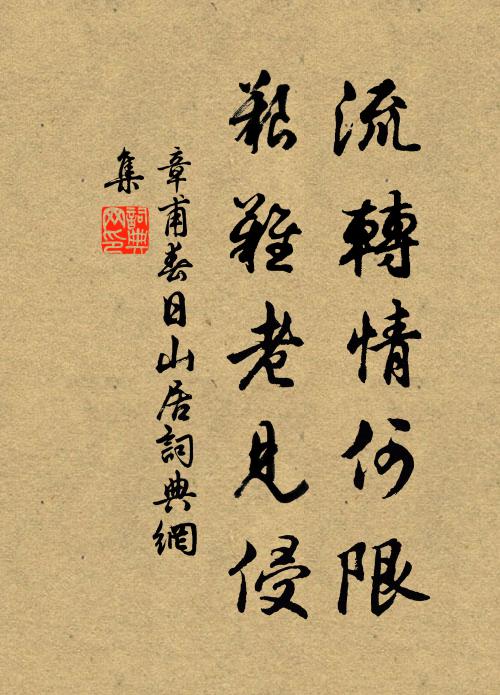 流轉情何限
艱難老見侵
章甫春日山居詞典網
集
詞典網印